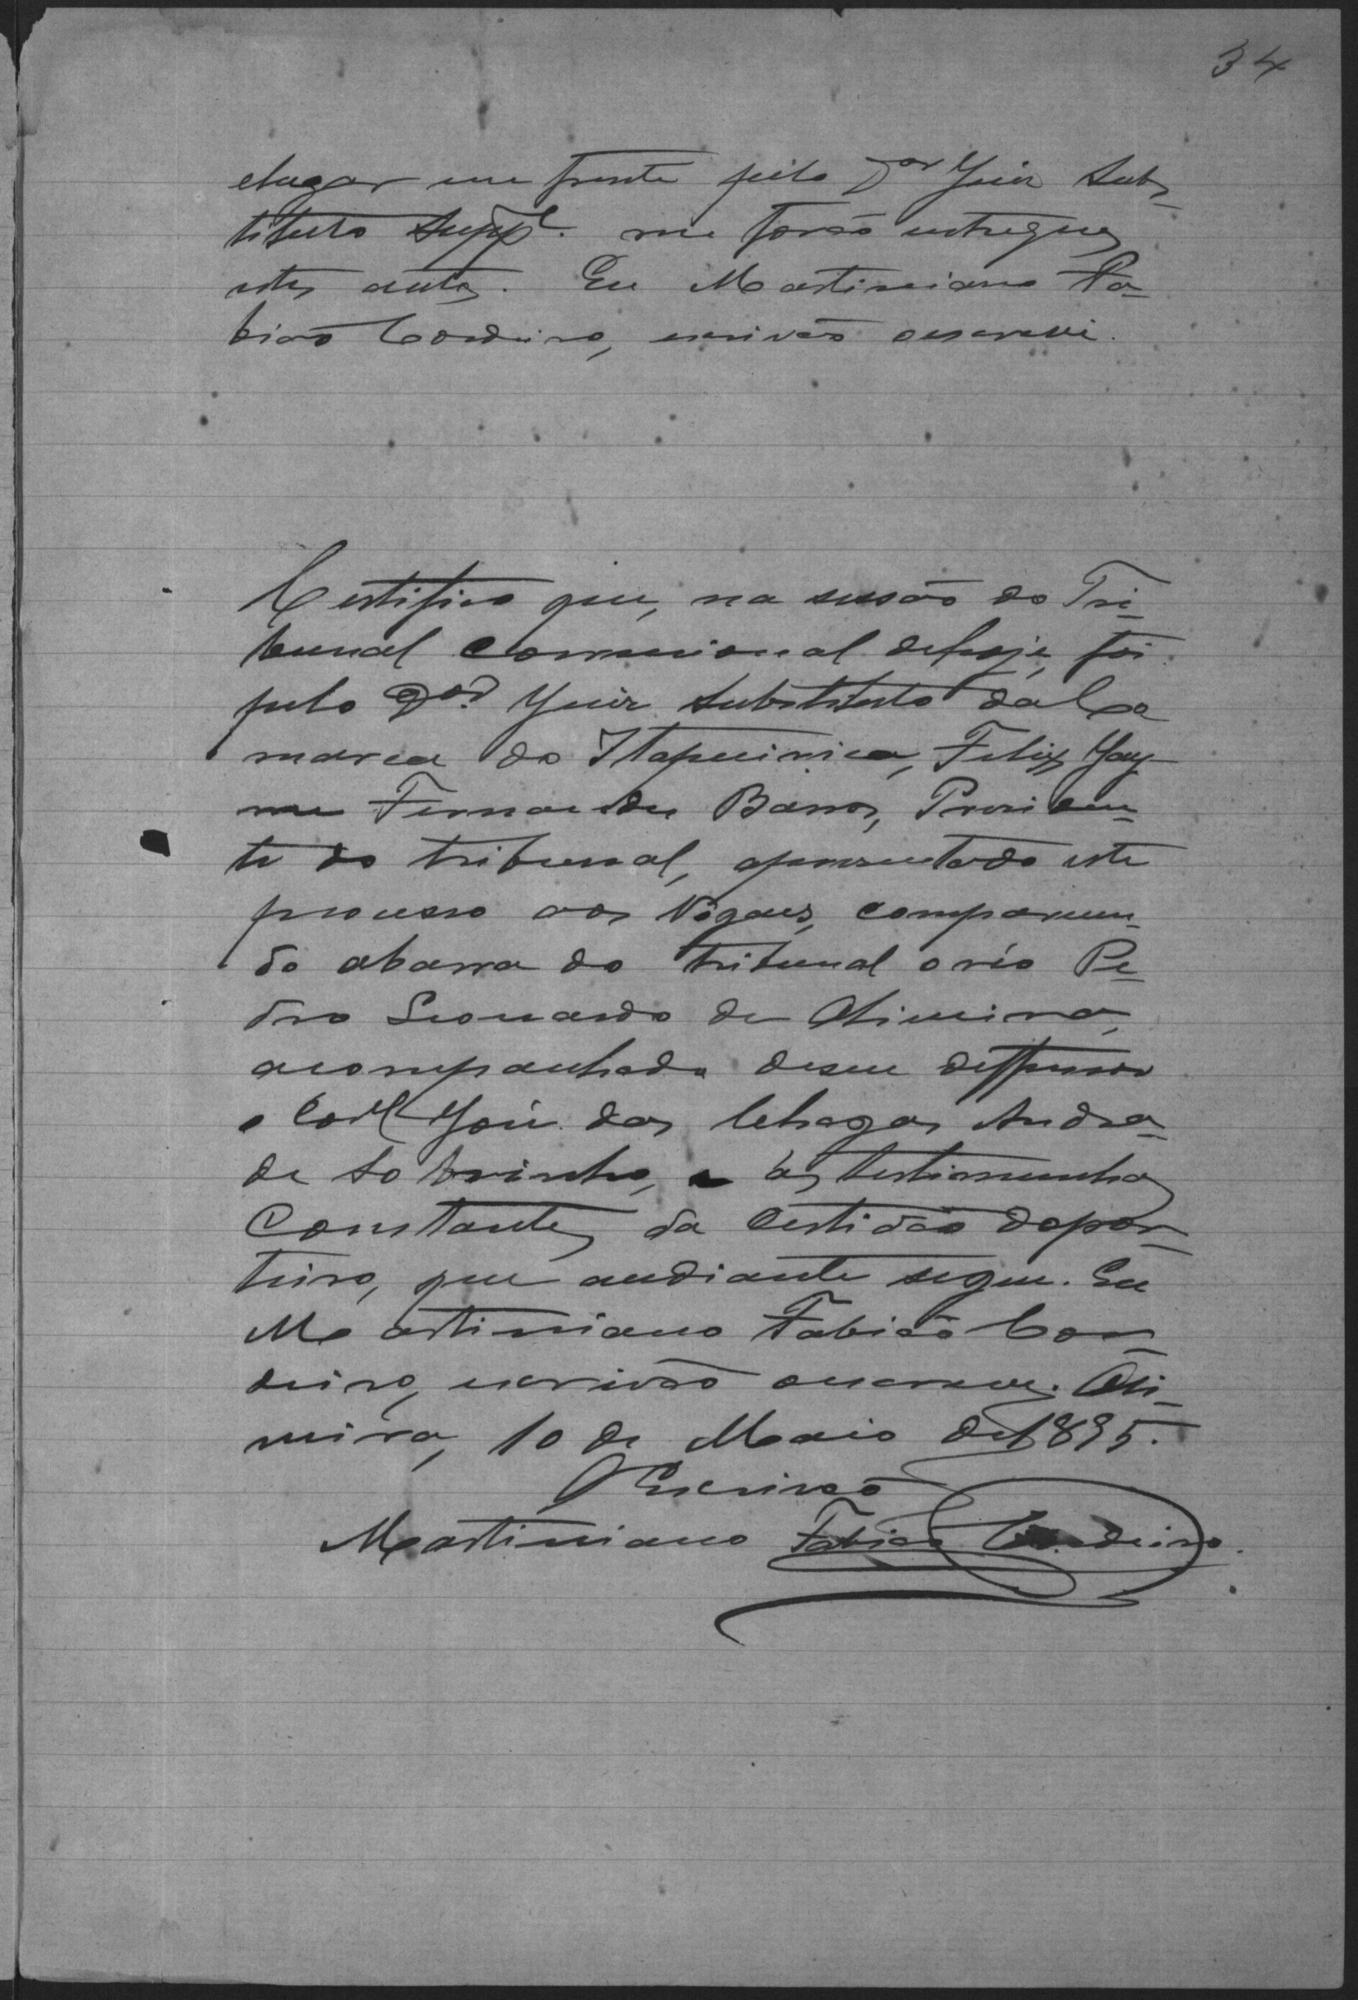 34
elugar em frente pelo Dor Juiz Subs-
tituto Suppl. me forão entregues
estes autos. Eu Martiniano Fa-
bião Cordeiro, escrivão oescrevi.
Certifico que, na sessão do Tri-
bunal Correcional dehoje, foi
pelo Dor Juiz substituto da Co
marca do Itapicurú, Felix Jay
me Fernandes Barros, Presiden-
te do tribunal, apresentado este
processo aos Vogaes, comparecen-
do abarra do tribunal o réo Pe-
dro Leonardo de
acompanhado deseu deffensor
o Corel José das Chagas Andra-
de Sobrinho, e as testimunhas
Constantes da Certidão doPor-
teiro, que aodiante segue. Eu
Martiniano Fabião Cor-
deiro, escrivão oescrevi.
10 de Maio de 1895.
O Escrivão
Martiniano Fabião Cordeiro.